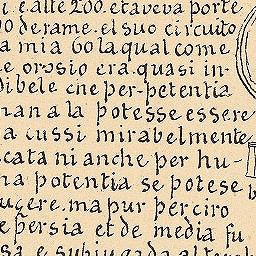 i e alte 200. et aveva porte
00 de rame. el suo circuito
a mia 60 la qual come
e orosio era quasi in-
dibele che per-petentia
nan a la potesse essere
a cussi mirabelmente
cata ni anche per hu-
na potentia se potese
ucere. ma pur per ciro
e persia et de media fu
sa e subiugada